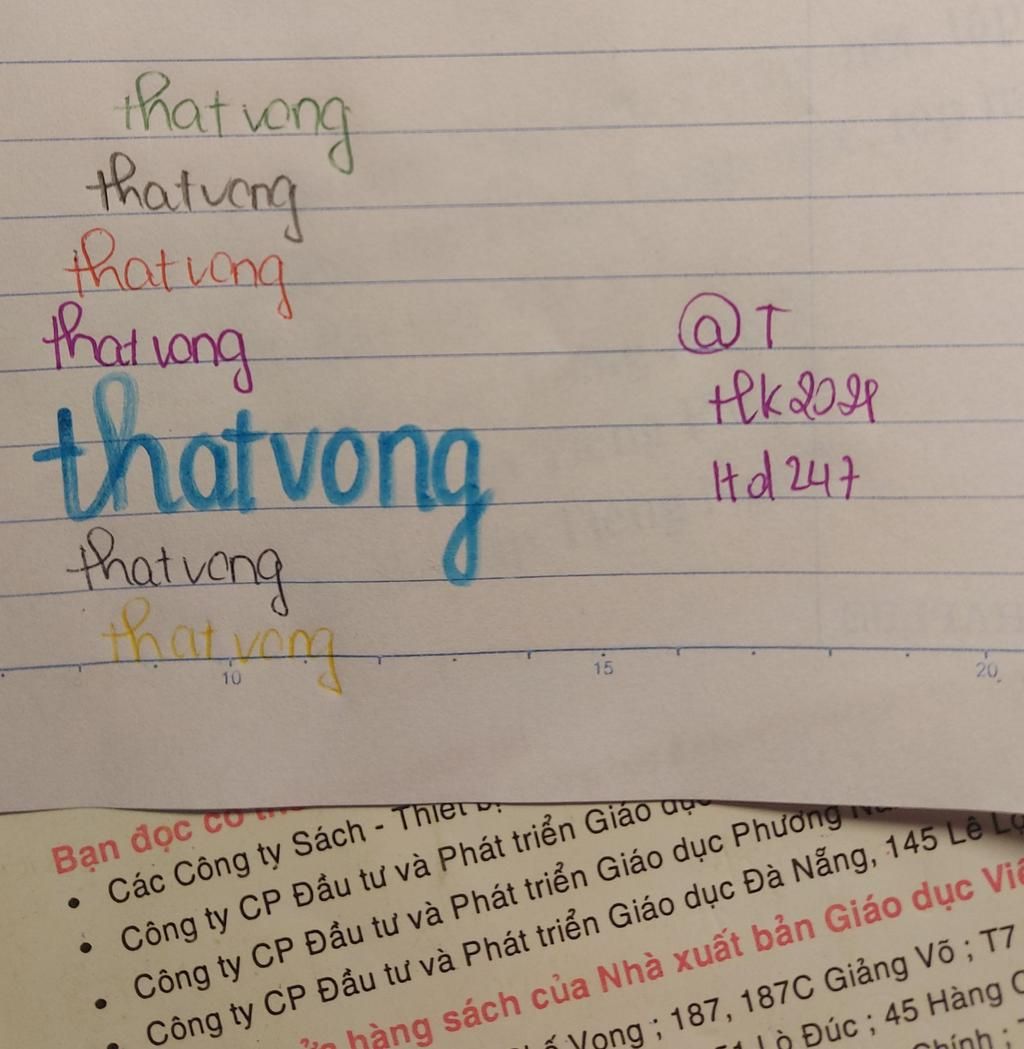 thatvong
thatvong
thatvong
thatvong
@T
thatvong
tlk2021
Htd247
thatvong
thatvong
10 15 20
Bạn đọc có
Các Công ty Sách - Thiết bị
Công ty CP Đầu tư và Phát triển Giáo dục
Công ty CP Đầu tư và Phát triển Giáo dục Phương
Công ty CP Đầu tư và Phát triển Giáo dục Đà Nẵng, 145 Lê
hàng sách của Nhà xuất bản Giáo dục
Vọng ; 187, 187C Giảng Võ ; T7
Lò Đúc ; 45 Hàng
Chính ;